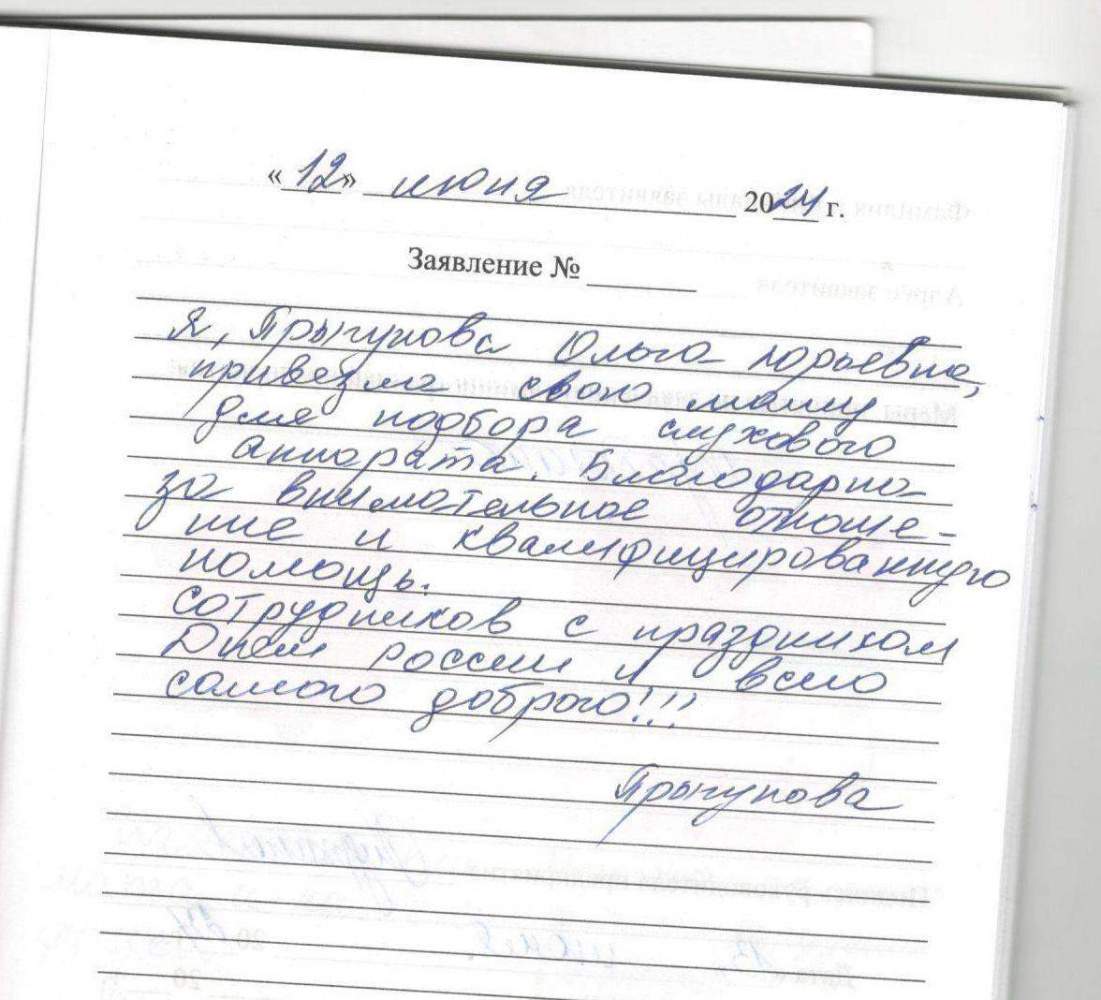 «12» июня 2024 г.
Заявление №
Я, Прыгунова Ольга Юрьевна,
привезла свою маму
для подбора слухового
аппарата. Благодарна
за внимательное отноше-
ние и квалифицированную
помощь.
сотрудников с праздником
Днем России и всего
самого доброго!!!
Прыгунова